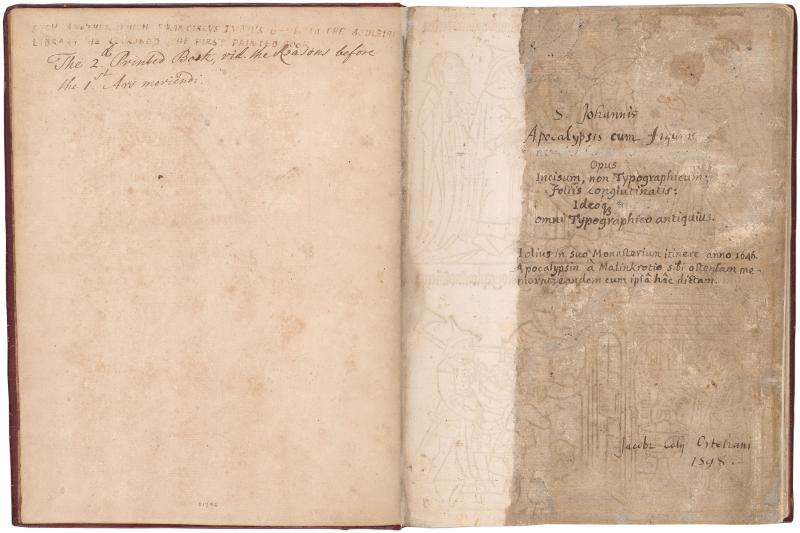 SUCH ANOTHER WHICH FRANCISCUS JUNIUS GAVE TO THE BODLEIAN
LIBRARY HE THE FIRST PRINTED BOOK
The 2.d Printed Book, vid. the Reasons before
the 1.st Ars moriendi.
S. Johannis
Apocalypsis cum Figuris
Opus
Incisum, non Typographicum;
foliis conglutinatis;
Ideoq3
omni Typographico antiquius.
Tolius in suo Monasterium itinere anno 1646.
Apocalypsin à Malinkrotio sibi ostensam me-
morat; eandem cum ipsâ hâc dictam.
Jacobi Colij Orteliani
1598.